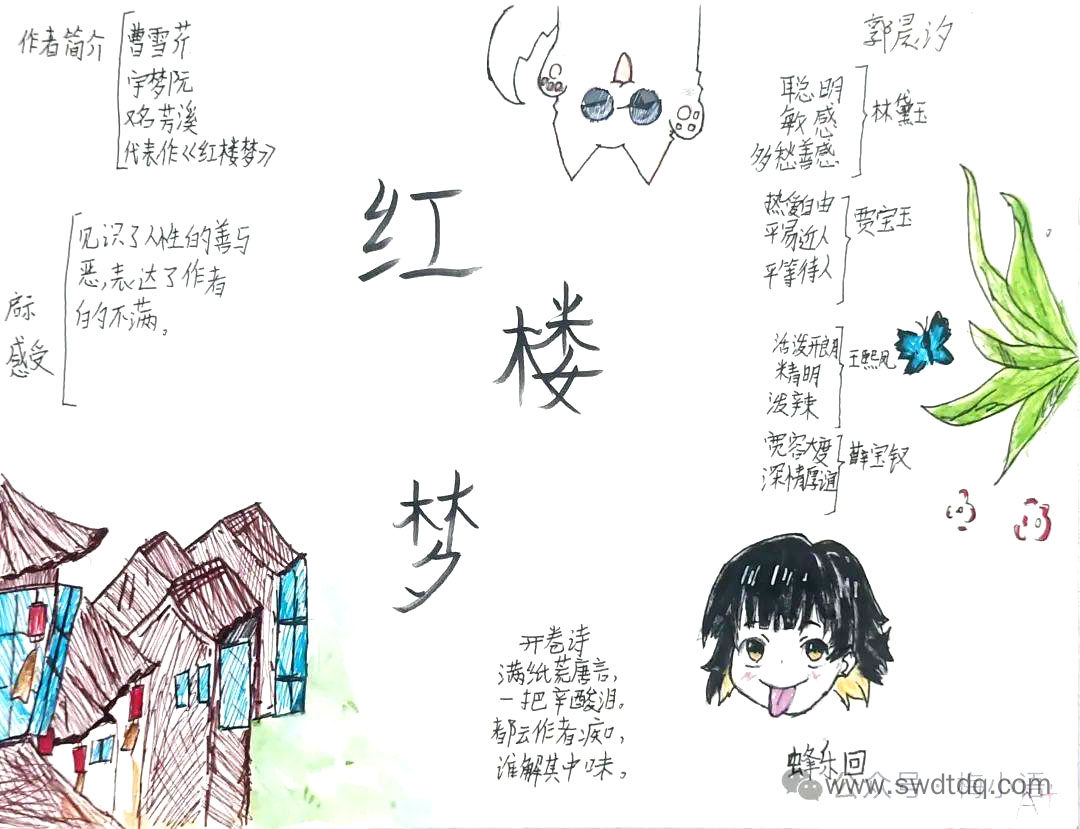 作者简介
曹雪芹
字梦阮
又名芳溪
代表作《红楼梦》
启示
感受
见识了人性的善与
恶,表达了作者
的不满。
红
楼
梦
郭晨汐
聪明
敏感
多愁善感
林黛玉
热爱自由
平易近人
平等待人
贾宝玉
活泼开朗
精明
泼辣
王熙凤
宽容大度
深情厚谊
薛宝钗
开卷诗
满纸荒唐言,
一把辛酸泪。
都云作者痴,
谁解其中味。
蜂乐回
公众号
www.swdtdq.com
A+